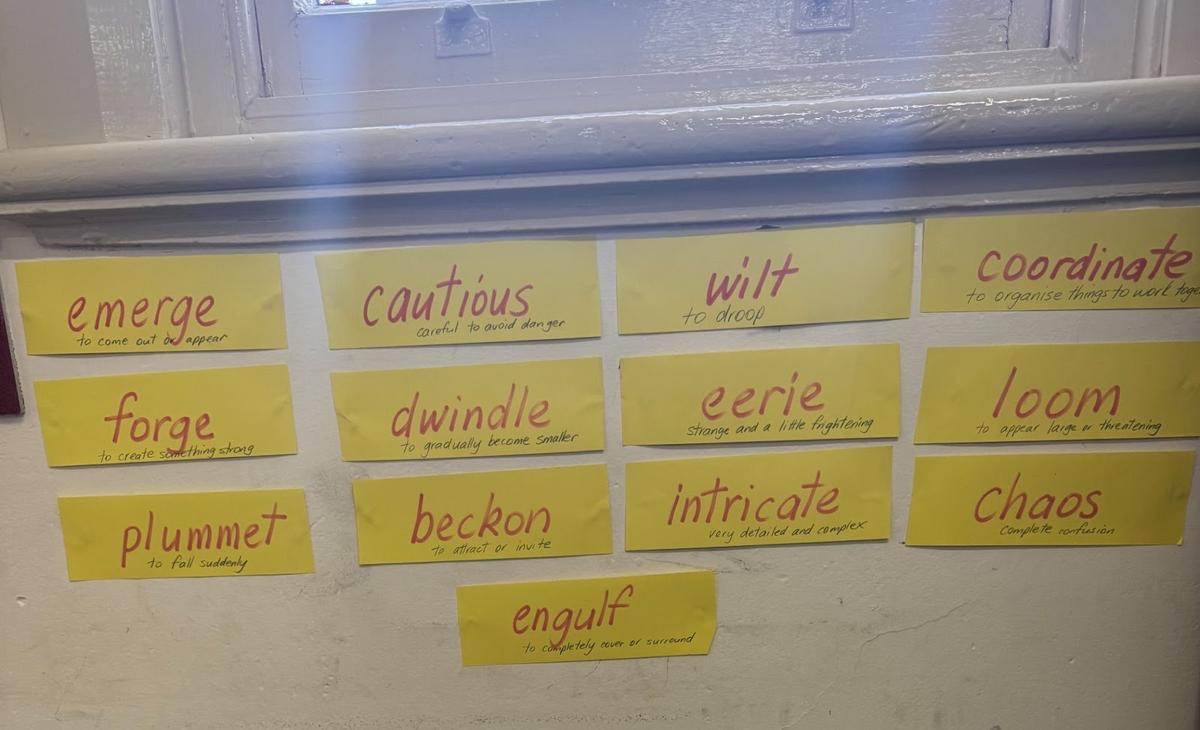 emerge
to come out or appear
cautious
careful to avoid danger
wilt
to droop
coordinate
to organise things to work
forge
to create something strong
dwindle
to gradually become smaller
eerie
strange and a little frightening
loom
to appear large or threatening
plummet
to fall suddenly
beckon
to attract or invite
intricate
very detailed and complex
chaos
complete confusion
engulf
to completely cover or surround